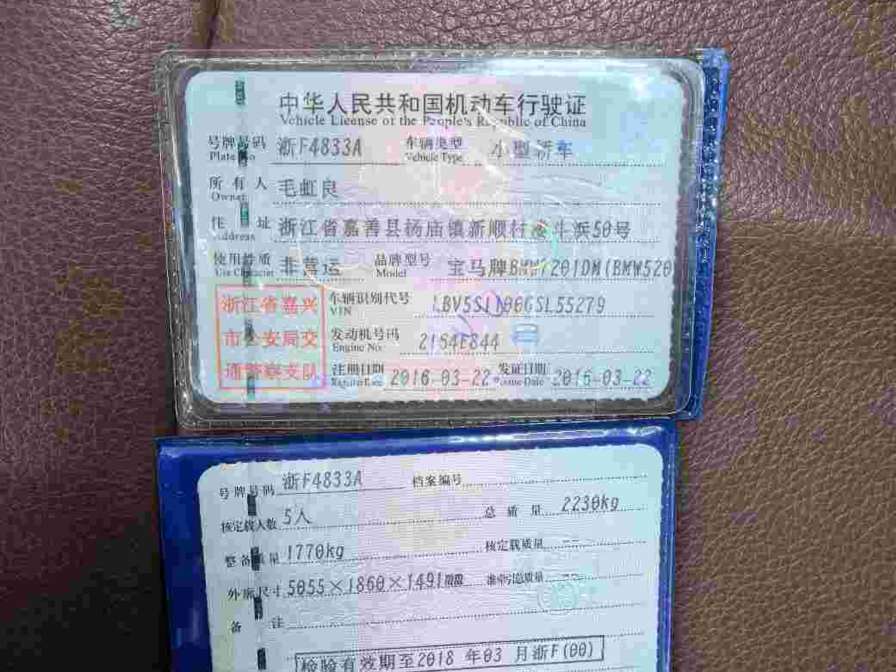 中华人民共和国机动车行驶证
Vehicle License of the People's Republic of China
号牌号码 浙F4833A 车辆类型 小型轿车
Plate No Vehicle Type
所有人 毛虹良
Owner
住址 浙江省嘉善县杨庙镇新顺村凌斗浜50号
Address
使用性质 非营运 品牌型号 宝马牌BMW7201DM(BMW520
Use Character Model
浙江省嘉兴 车辆识别代号
VIN
市公安局交 发动机号码
Engine No.
通警察支队 注册日期 2016-03-22 发证日期 2016-03-22
Register Date Issue Date
号牌号码 浙F4833A 档案编号
核定载人数 5人 总质量 2230kg
整备质量 1770kg 核定载质量 --
外廓尺寸 5055×1860×1491mm 准牵引总质量 --
备注
检验有效期至2018年03月浙F(00)